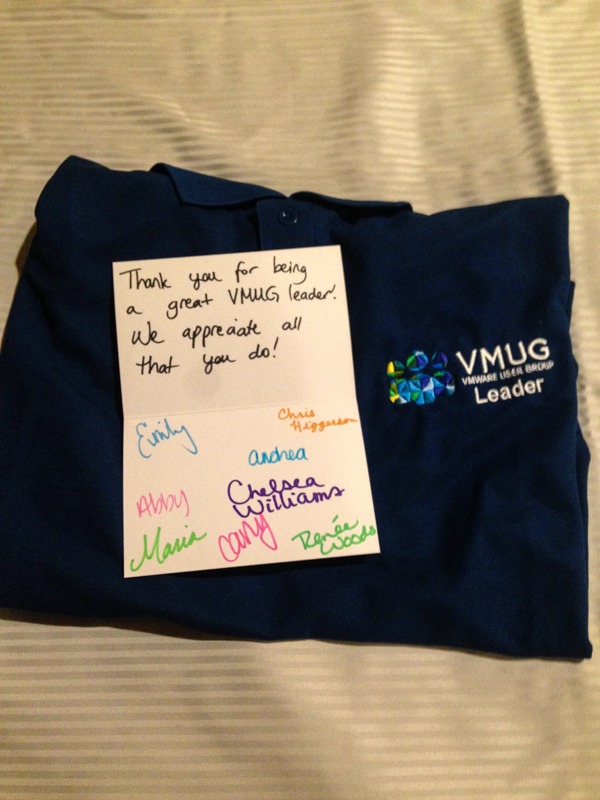 Thank you for being
a great VMUG leader!
We appreciate all
that you do!
Emily
Chris
Higgerson
andrea
Abby
Chelsea
Williams
Maria
Cary
Renée
Woods
VMUG
VMWARE USER GROUP
Leader